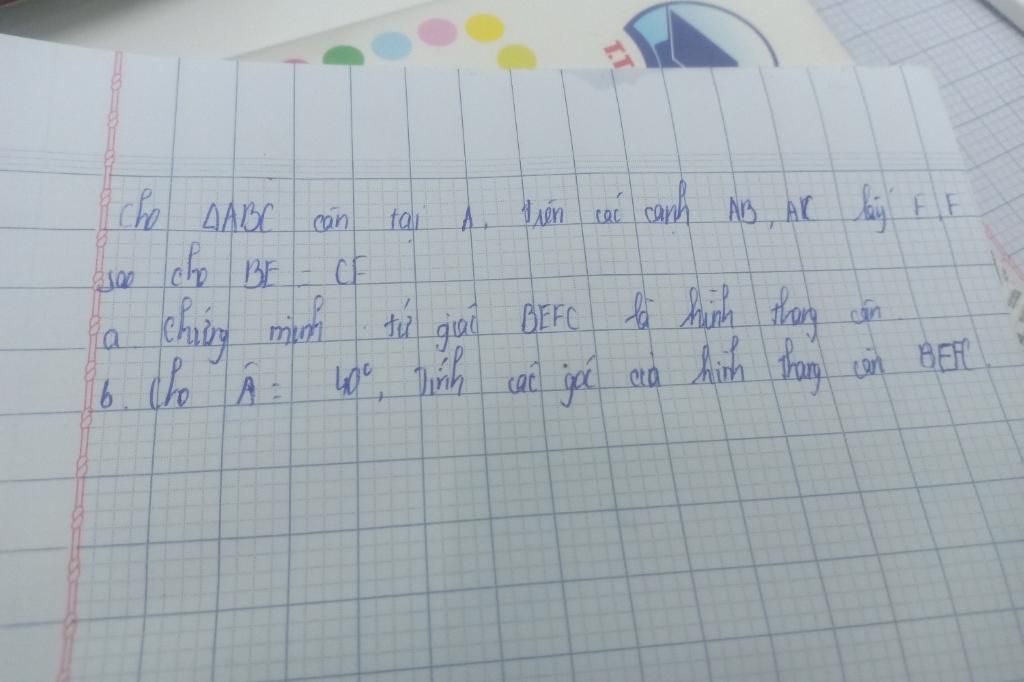 T.T
Cho ΔABC cân tại A. trên các cạnh AB, AC lấy E, F
sao cho BE = CF
a. chứng minh tứ giác BEFC là hình thang cân
b. Cho Â = 40°, tính các góc của hình thang cân BEFC.